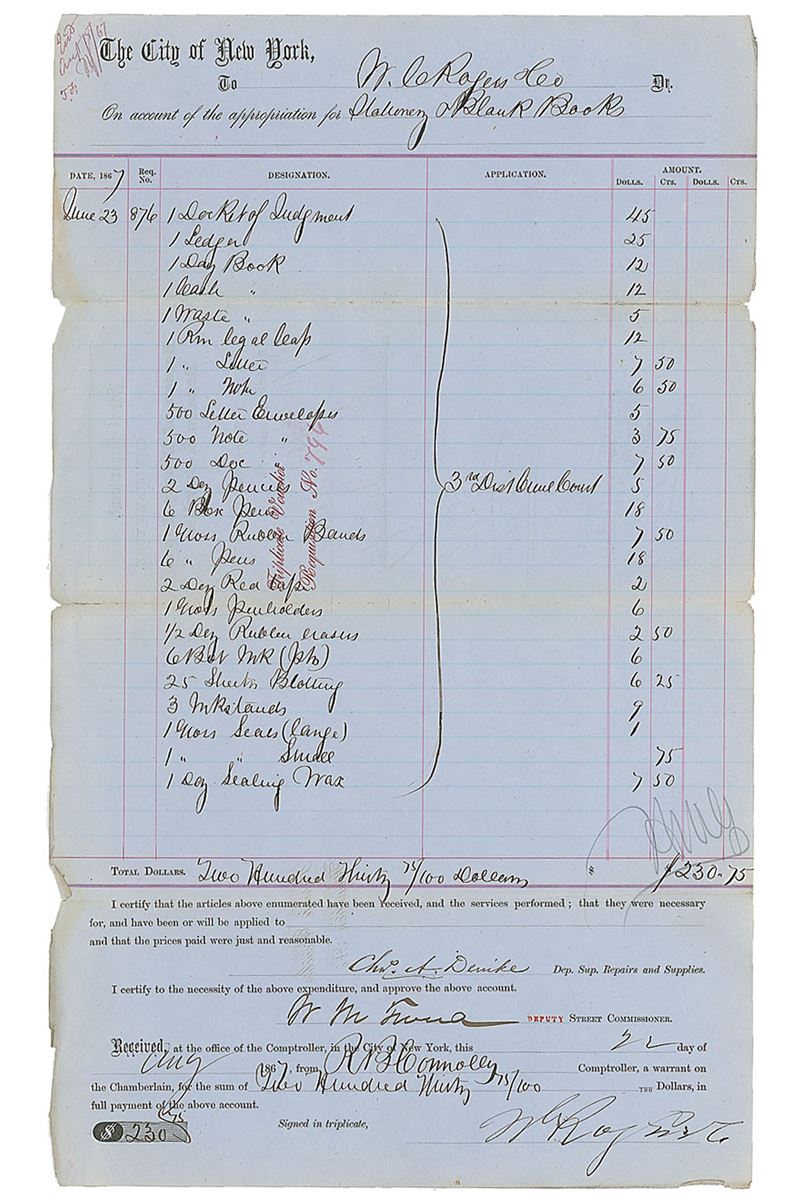 The City of New York,
To W. C Rogers & Co Dr.
On account of the appropriation for Stationery & Blank Books
DATE, 1867 Req. No. DESIGNATION. APPLICATION. AMOUNT.
DOLLS. CTS. DOLLS. CTS.
June 23 876 1 Docket of Judgment 45
1 Ledger 25
1 Day Book 12
1 Cash " 12
1 Waste " 5
1 Rm legal Cap 12
1 " Letter 7 50
1 " Note 6 50
500 Letter Envelopes 5
500 Note " 3 75
500 Doc " 7 50
2 Doz Pencils 3rd Dist Civil Court 5
6 Box Pens 18
1 Gross Rubber Bands 7 50
6 " Pens 18
2 Doz Red Tape 2
1 Gross Penholders 6
1/2 Doz Rubber erasers 2 50
6 Bot Ink (pts) 6
25 Sheets Blotting 6 25
3 Inkstands 9
1 Gross Seals (large) 1
1 " " Small 75
1 Doz Sealing Wax 7 50
Triplicate Voucher
Requisition No. 794
TOTAL DOLLARS. Two Hundred Thirty 75/100 Dollars $ $230.75
I certify that the articles above enumerated have been received, and the services performed; that they were necessary
for, and have been or will be applied to
and that the prices paid were just and reasonable.
Chas. A. Denike Dep. Sup. Repairs and Supplies.
I certify to the necessity of the above expenditure, and approve the above account.
W M DEPUTY STREET COMMISSIONER.
Received, at the office of the Comptroller, in the City of New York, this 22 day of
Aug 1867, from R B Connolly Comptroller, a warrant on
the Chamberlain, for the sum of Two Hundred Thirty 75/100 Dollars, in
full payment of the above account.
$ 230 75
Signed in triplicate,
W C Rogers & Co